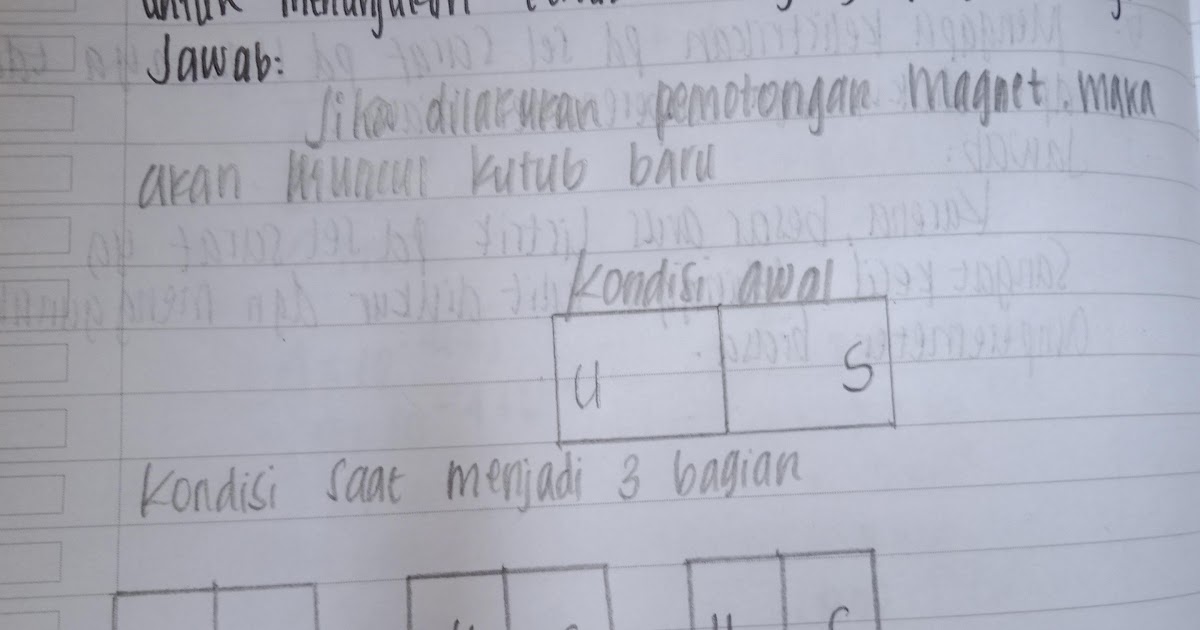 untuk menunjukkan
Jawab:
Jika dilakukan pemotongan magnet, maka
akan muncul kutub baru
Kondisi awal
U S
Kondisi saat menjadi 3 bagian
U S U S